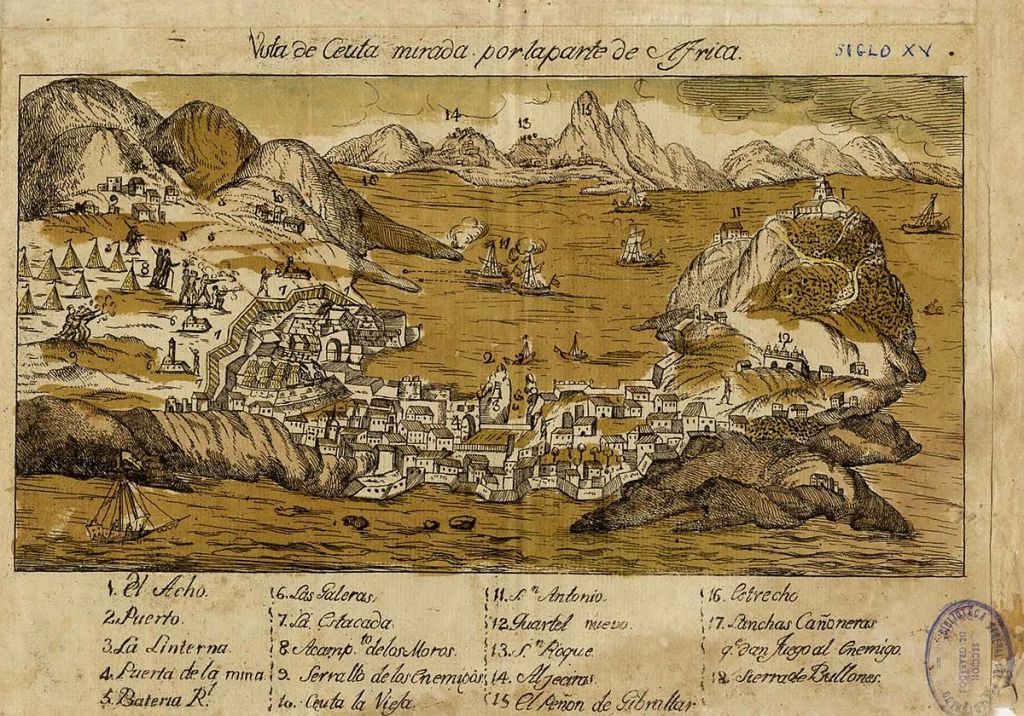 Vista de Ceuta mirada por la parte de Africa.
SIGLO XV
14
13
15
18
16
1
11
17
9
8
10
7
8
6
6
9
2
3
4
12
1. El Acho.
2. Puerto.
3. La Linterna.
4. Puerta de la mina.
5. Bateria Rl.
6. Las Galeras.
7. La Estacada.
8 Acamp.to de los Moros.
9. Serrallo de los Enemigos.
10. Ceuta la Vieja.
11. S.n Antonio.
12. Quartel nuevo.
13. S.n Roque.
14. Algeciras.
15 El Peñon de Gibraltar
16. Estrecho
17. Lanchas Cañoneras
q.e dan fuego al Enemigo.
18. Sierra de Bullones.
BIBLIOTECA
SECCION
DE GRABADOS